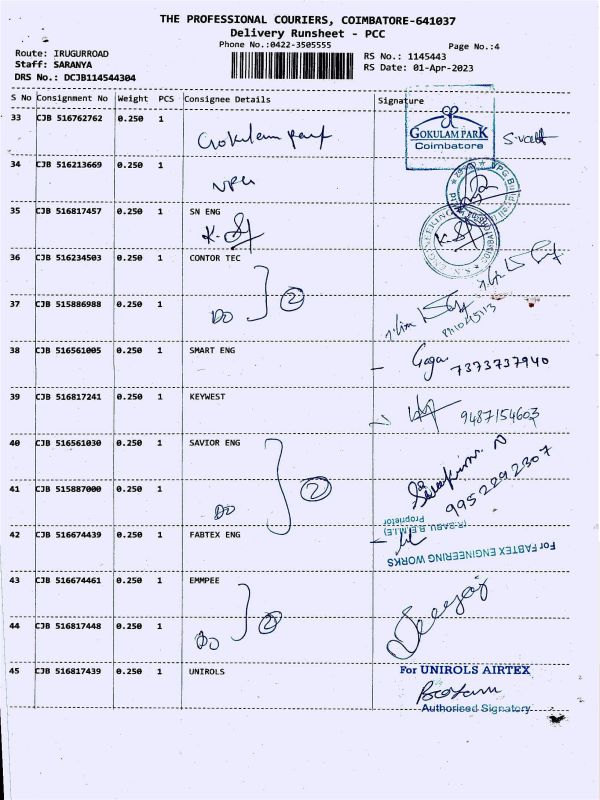 THE PROFESSIONAL COURIERS, COIMBATORE-641037
Delivery Runsheet - PCC
Phone No.:0422-3505555
Page No.:4
Route: IRUGURROAD
Staff: SARANYA
DRS No.: DCJB114544304
RS No.: 1145443
RS Date: 01-Apr-2023
S No Consignment No Weight PCS Consignee Details Signature
33 CJB 516762762 0.250 1 Gokulam park
GOKULAM PARK
Coimbatore
34 CJB 516213669 0.250 1 NPG
35 CJB 516817457 0.250 1 SN ENG
36 CJB 516234503 0.250 1 CONTOR TEC
37 CJB 515886988 0.250 1 Do 2
38 CJB 516561005 0.250 1 SMART ENG
Gaga
7373737940
39 CJB 516817241 0.250 1 KEYWEST
9487154603
40 CJB 516561030 0.250 1 SAVIOR ENG
41 CJB 515887000 0.250 1 Do 2
9952292307
42 CJB 516674439 0.250 1 FABTEX ENG
For FABTEX ENGINEERING WORKS
(R.BABU, B.E,M.I.E)
Proprietor
43 CJB 516674461 0.250 1 EMMPEE
44 CJB 516817448 0.250 1 Do 2
45 CJB 516817439 0.250 1 UNIROLS
For UNIROLS AIRTEX
Authorised Signatory